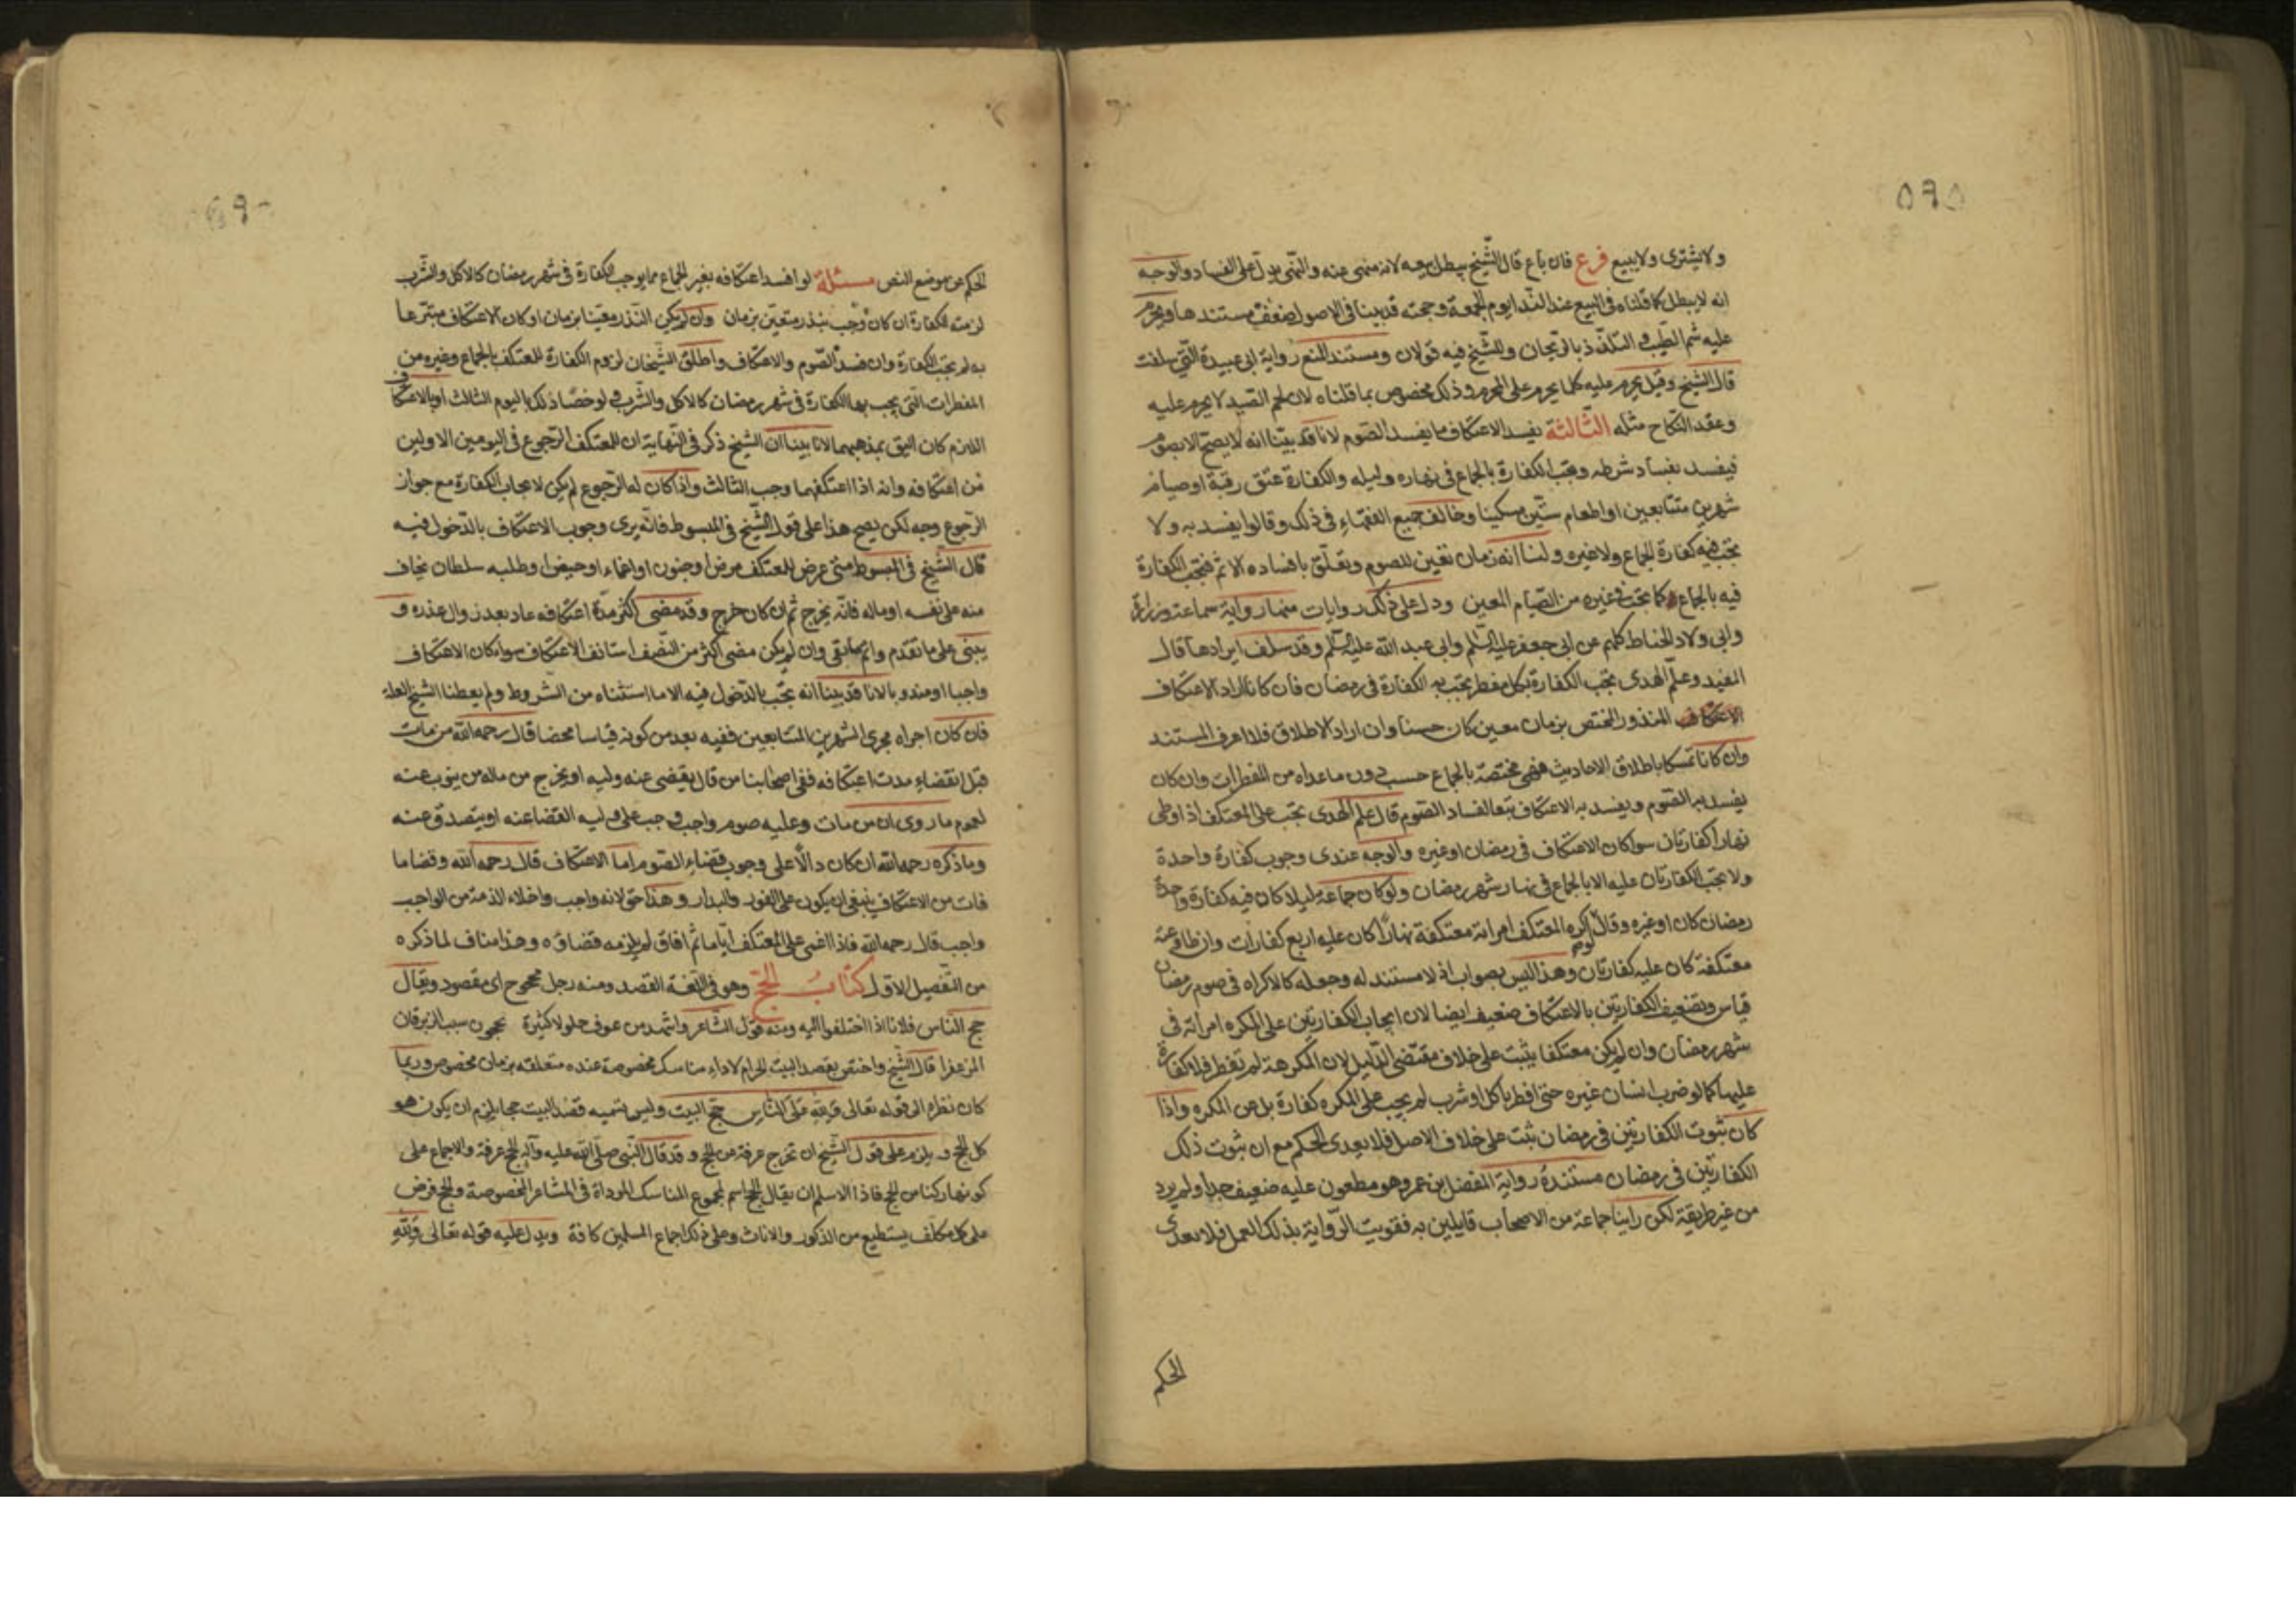 ٥٩٥
ولا يشترى ولا يبيع فرع فان باع قال الشيخ يبطل بيعه لانه منهى عنه والنهى يدل على الفساد والوجه
انه لا يبطل كما قلناه فى البيع عند النداء يوم الجمعة وحجته قد بينا فى الاصول ضعف مستندها ويحرم
عليه شم الطيب و التلذذ بالريحان وللشيخ فيه قولان ومستند المنع رواية ابى عبيدة التى سلفت
قال الشيخ وقيل يحرم عليه كلما يحرم على المحرم وذلك مخصوص بما قلناه لان لحم الصيد لا يحرم عليه
وعقد النكاح مثله الثالثة يفسد الاعتكاف ما يفسد الصوم لانا قد بينا انه لا يصح الا بصوم
فيفسد بفساد شرطه وتجب الكفارة بالجماع فى نهاره وليله والكفارة عتق رقبة او صيام
شهرين متتابعين او اطعام ستين مسكينا وخالف جميع الفقهاء فى ذلك وقالوا يفسد به ولا
تجب فيه كفارة لجماع ولا غيره ولنا انه زمان تعين للصوم وتعلق بافساده الاثم فتجب الكفارة
فيه بالجماع كما تجب فى غيره من الصيام المعين ودل على ذلك روايات منها رواية سماعة وزرارة
وابى ولاد الحناط كلهم عن ابى جعفر عليه السلم وابى عبد الله عليه السلم وقد سلف ايرادها قال
المفيد وعلم الهدى تجب الكفارة بكل مفطر يجب به الكفارة فى رمضان فان كانا ارادا الاعتكاف
الاعتكاف المنذور المختص بزمان معين كان حسنا وان ارادا الاطلاق فلا اعرف المستند
وان كانا تمسكا باطلاق الاحاديث فهى مختصة بالجماع حسب دون ما عداه من المفطرات وان كان
يفسد به الصوم ويفسد به الاعتكاف تبعا لفساد الصوم قال علم الهدى تجب على المعتكف اذا وطى
نهارا كفارتان سواكان الاعتكاف فى رمضان او غيره والوجه عندى وجوب كفارة واحدة
ولا تجب الكفارتان عليه الا بالجماع فى نهار شهر رمضان ولو كان جماعه ليلا كان فيه كفارة واحدة
رمضان كان او غيره وقال لو اكره المعتكف امراته معتكفة نهارا كان عليه اربع كفارات وان طاوعته
معتكفة كان عليه كفارتان وهذا ليس بصواب اذ لا مستند له وجعله كالاكراه فى صوم رمضان
قياس وتضعيف الكفارتين بالاعتكاف ضعيف ايضا لان ايجاب الكفارتين على المكره امراته فى
شهر رمضان وان لم يكن معتكفا يثبت على خلاف مقتضى الدليل لان المكرهة لم تفطر فلا كفارة
عليها كما لو ضرب انسان غيره حتى افطر باكل او شرب لم يجب على المكره كفارة بل عن المكره واذا
كان ثبوت الكفارتين فى رمضان ثبت على خلاف الاصل فلا يعدى الحكم مع ان ثبوت ذلك
الكفارتين فى رمضان مستنده رواية المفضل بن عمر وهو مطعون عليه ضعيف جدا ولم يرد
من غير طريقة لكن راينا جماعة من الاصحاب قايلين به فقويت الرواية بذلك العمل فلا يعدى
الحكم
الحكم عن موضع النص مسئلة لو افسد اعتكافه بغير الجماع مما يوجب الكفارة فى شهر رمضان كالاكل والشرب
لزمته الكفارة ان كان وجب بنذر متعين بزمان وان لم يكن النذر معينا بزمان او كان الاعتكاف متبرعا
به لم تجب الكفارة وان فسد الصوم والاعتكاف واطلق الشيخان لزوم الكفارة للمعتكف بالجماع وغيره من
المفطرات التى يجب بها الكفارة فى شهر رمضان كالاكل والشرب ولو خصا ذلك باليوم الثالث او بالاعتكاف
اللازم كان اليق بمذهبهما لانا بينا ان الشيخ ذكر فى النهاية ان للمعتكف الرجوع فى اليومين الاولين
من اعتكافه وانه اذا اعتكفهما وجب الثالث واذا كان له الرجوع لم يكن لايجاب الكفارة مع جواز
الرجوع وجه لكن يصح هذا على قول الشيخ فى المبسوط فانه يرى وجوب الاعتكاف بالدخول فيه
قال الشيخ فى المبسوط متى عرض للمعتكف مرض او جنون او اغماء او حيض او طلبه سلطان يخاف
منه على نفسه او ماله فانه يخرج ثم ان كان خرج وقد مضى اكثر مدة اعتكافه عاد بعد زوال عذره و
يبنى على ما تقدم واتم ما بقى وان لم يكن مضى اكثر من النصف استانف الاعتكاف سواء كان الاعتكاف
واجبا او مندوبا لانا قد بينا انه تجب بالدخول فيه الا ما استثناه من الشروط ولم يعطنا الشيخ العلة
فان كان اجراه مجرى الشهرين المتتابعين ففيه بعد من كونه قياسا محضا قال رحمه الله من مات
قبل انقضاء مدت اعتكافه ففى اصحابنا من قال يقضى عنه وليه او يخرج من ماله من ينوب عنه
لعموم ما روى ان من مات وعليه صوم واجب وجب على وليه القضا عنه او يتصدق عنه
وما ذكره رحمه الله ان كان دالا على وجوب قضاء الصوم اما الاعتكاف قال رحمه الله وقضا ما
فات من الاعتكاف ينبغى ان يكون على الفور والبدار وهذا حق لانه واجب واخلاء الذمة من الواجب
واجب قال رحمه الله فاذا اغمى على المعتكف اياما ثم افاق لم يلزمه قضاؤه وهذا مناف لما ذكره
من التفصيل الاول كتاب الحج وهو فى اللغة القصد ومنه رجل محجوج اى مقصود ويقال
حج الناس فلانا اذا اختلفوا اليه ومنه قول الشاعر واشهد من عوف حلولا كثيرة يحجون سب الزبرقان
المزعفرا قال الشيخ واختص بقصد البيت الحرام لاداء مناسك مخصوصة عنده متعلقه بزمان مخصوص وربما
كان نظره الى قوله تعالى ولله على الناس حج البيت وليس تسميه قصد البيت حجا يلزم ان يكون هو
كل الحج و يلزم على قول الشيخ ان تخرج عرفة من الحج و قد قال النبى صلى الله عليه وآله الحج عرفة والاجماع على
كونها ركنا من الحج فاذا الاسلم ان يقال الحج اسم لمجموع المناسك المؤداة فى المشاعر المخصوصة والحج فرض
على كل مكلف يستطيع من الذكور والاناث وعلى ذلك اجماع المسلمين كافة ويدل عليه قوله تعالى ولله